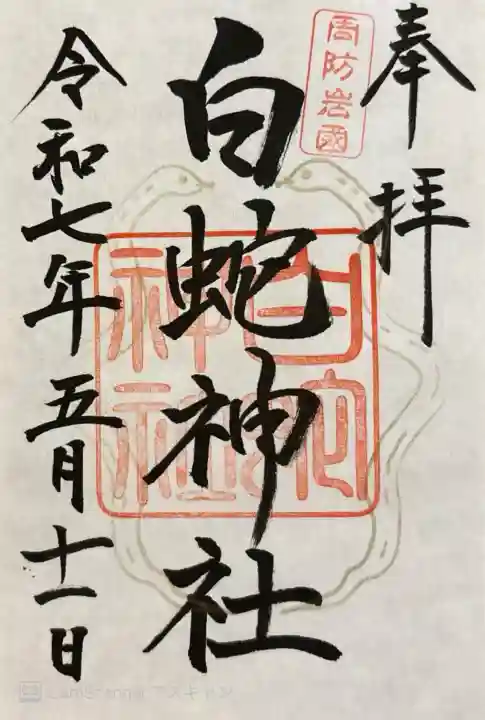 奉拝
周防岩國
白蛇神社
白蛇神社
令和七年五月十一日